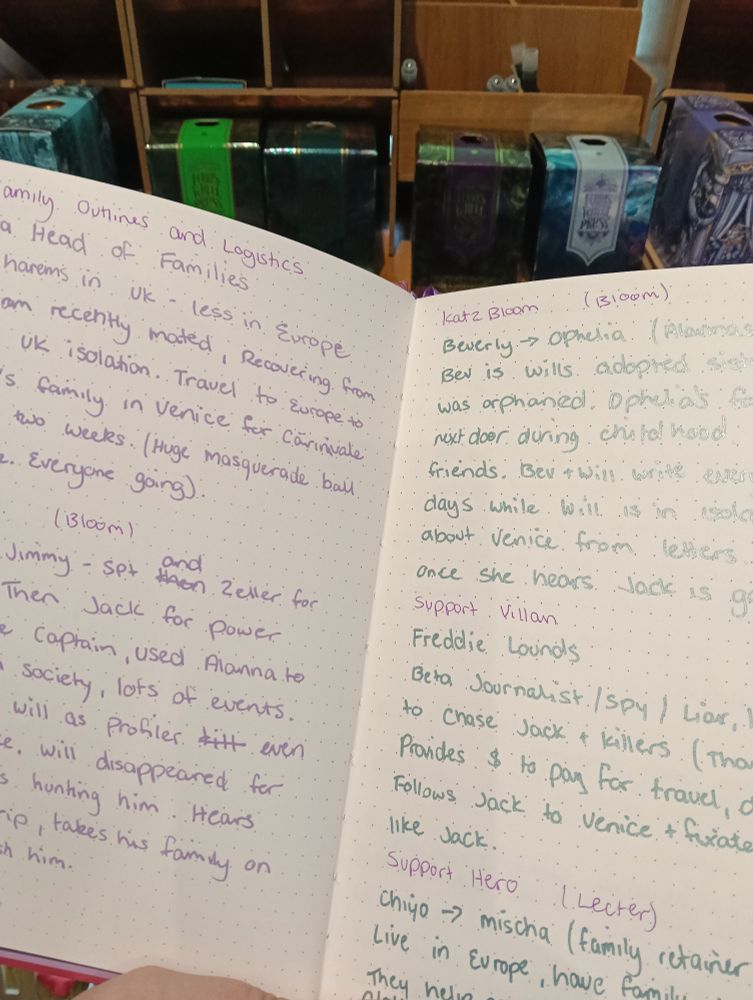 amily Outlines and Logistics
a Head of Families
harems in UK - less in Europe
am recently mated, Recovering from
UK isolation. Travel to Europe to
's family in Venice for Carinivale
two weeks. (Huge masquerade ball
e. Everyone going).
(Bloom)
Jimmy - spt and
then Zeller for
Then Jack for power
e Captain, used Alanna to
society, lots of events.
will as Profiler even
ce. will disappeared for
s hunting him. Hears
rip, takes his family on
h him.
Katz Bloom (Bloom)
Beverly → Ophelia (Alannas
Bev is wills adopted sist
was orphaned. Ophelia's fa
next door during childhood.
friends. Bev + Will write ever
days while Will is in isola
about Venice from letters
once she hears Jack is go
Support Villan
Freddie Lounds
Beta Journalist / Spy / Liar,
to chase Jack + killers (Tha
Provides $ to pay for travel, d
Follows Jack to Venice + fixate
like Jack.
Support Hero (Lecter)
Chiyo → mischa (family retainer
Live in Europe, have famil
They help